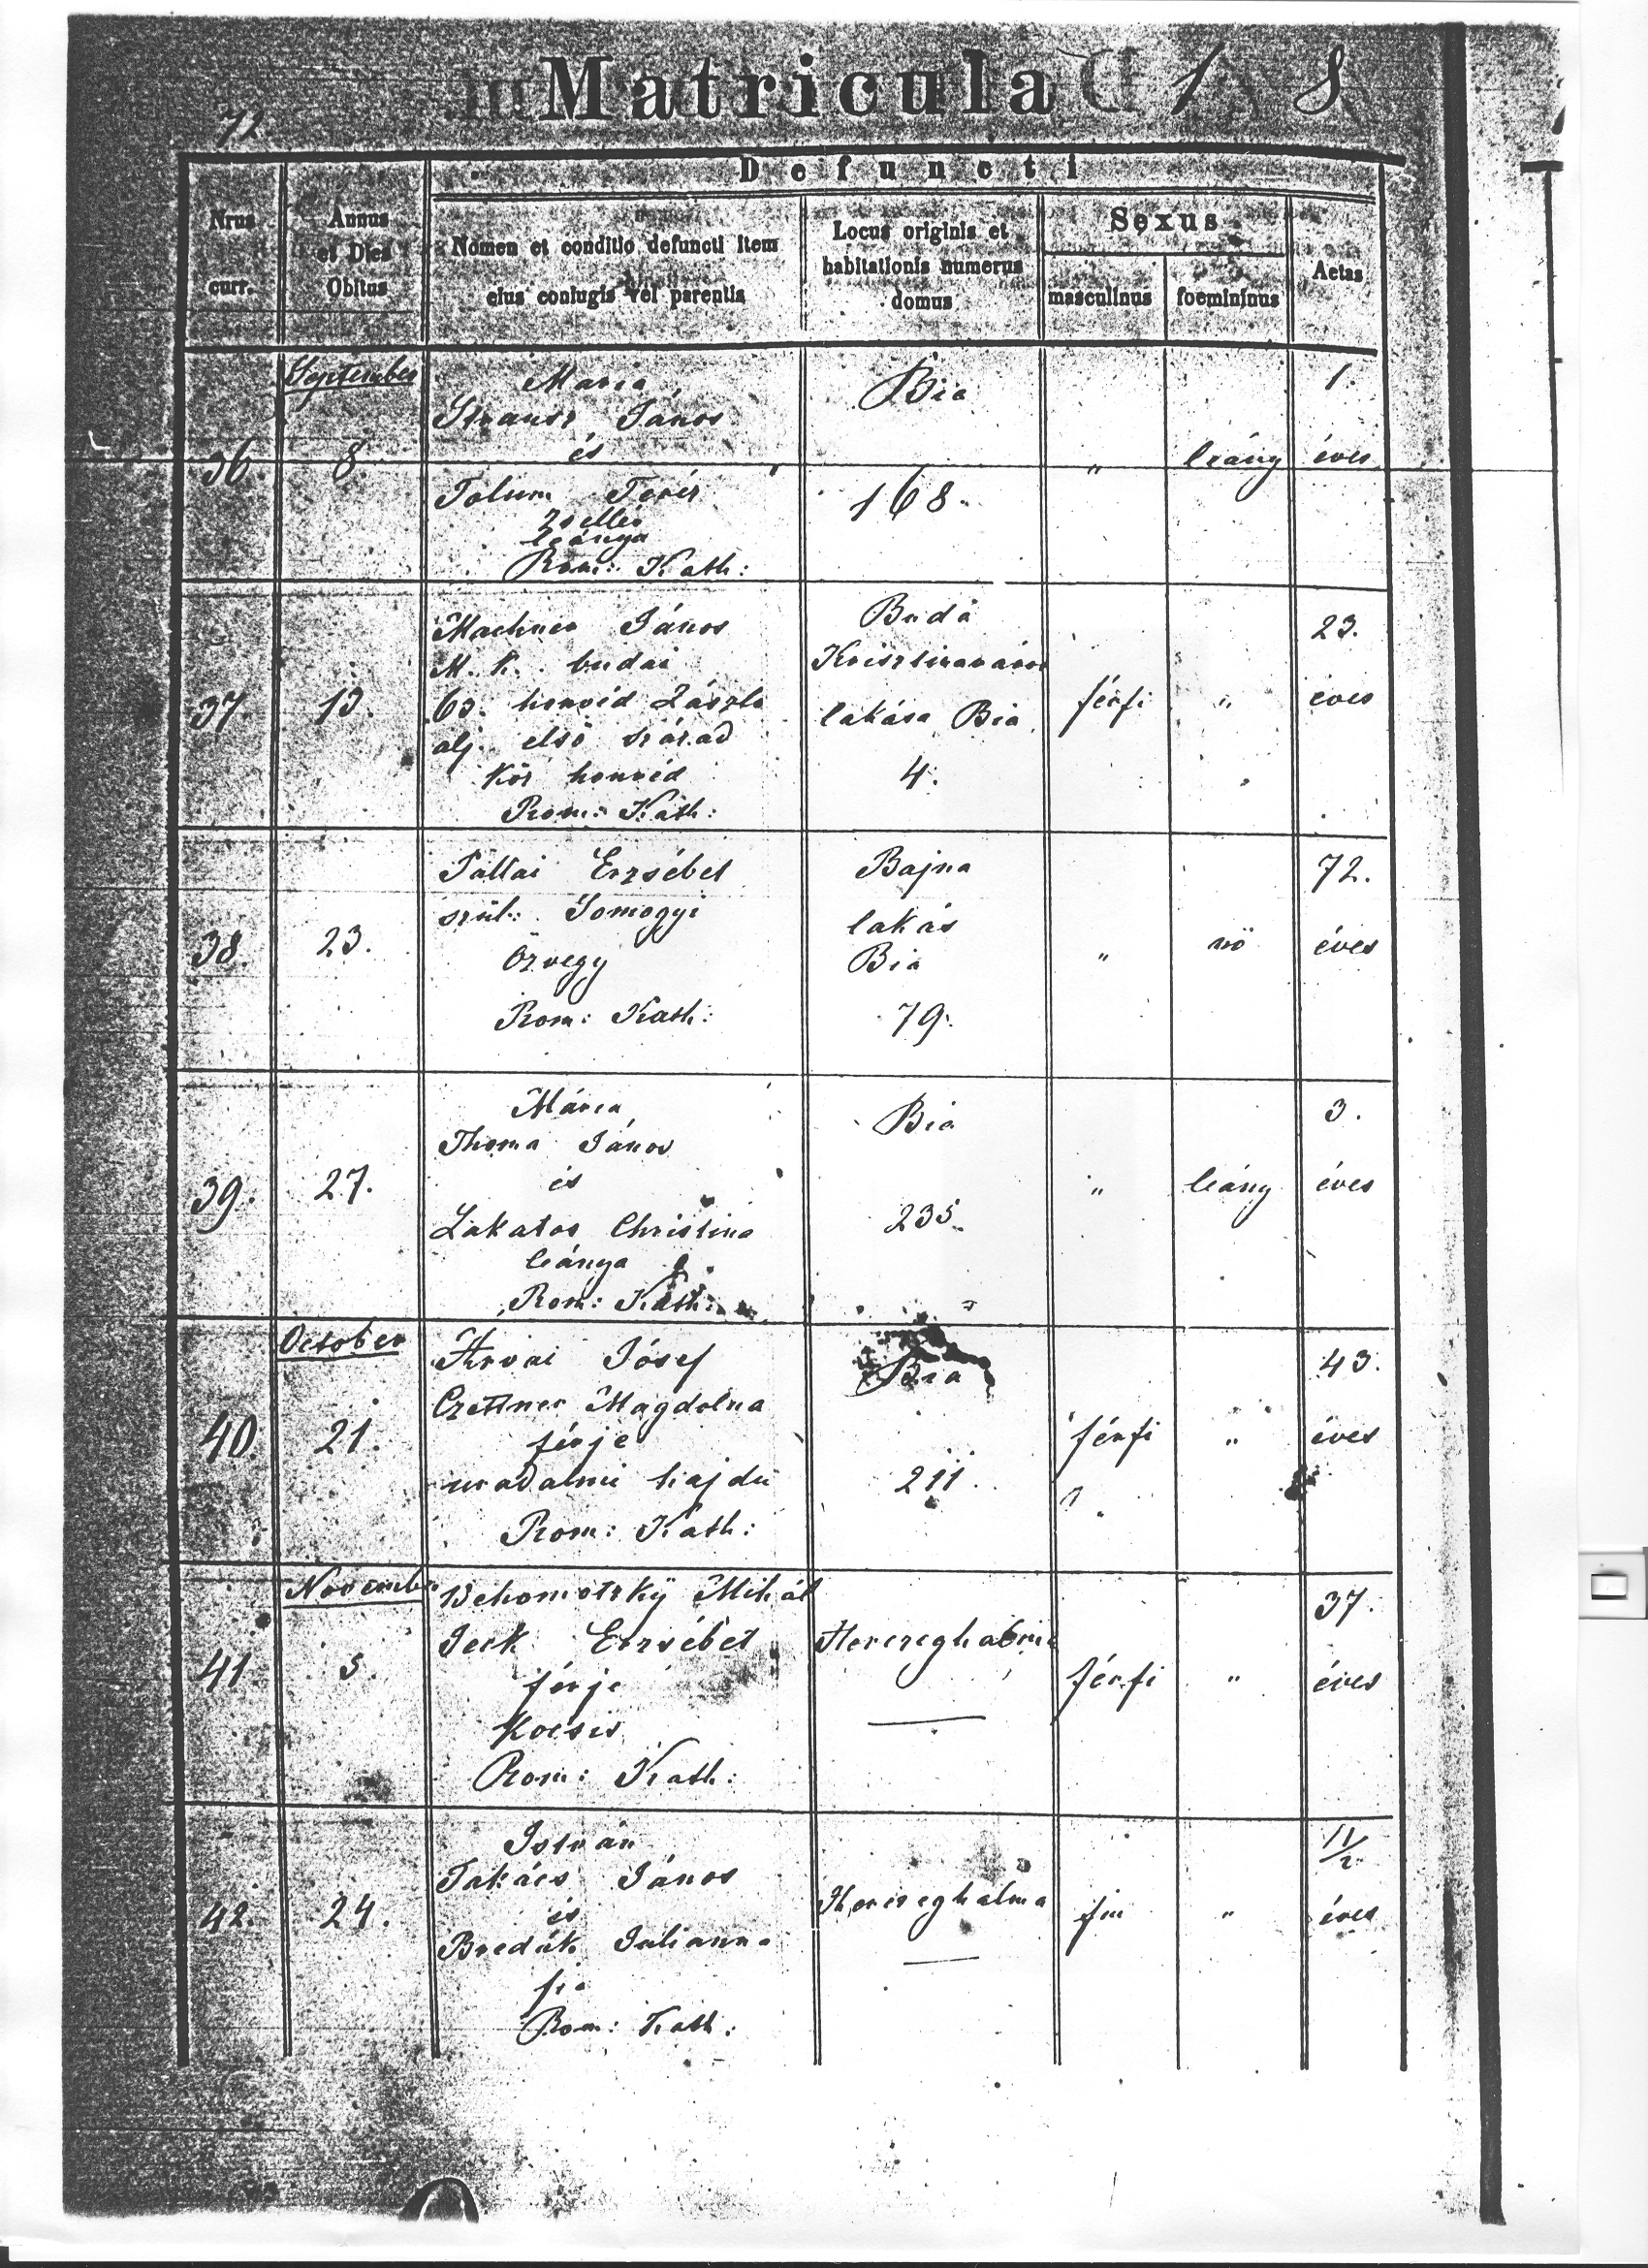 72
Matricula
Defuncti
Nrus curr.
Annus et Dies Obitus
Nomen et conditio defuncti item eius coniugis vel parentis
Locus originis et habitationis numerus domus
Sexus
masculinus
foemininus
Aetas
September
36. 8
Maria
Strausz János
és
Teréz
zsellér
leánya
Rom: Kath:
Bia
168.
"
leány
1. éves
37. 13.
Machner János
M. k. budai
63. honvéd Zászló
alj. első század
Köz honvéd
Rom: Kath:
Buda
Krisztinaváros
lakása Bia
4.
férfi
"
23. éves
38. 23.
Pállai Erzsébet
szül: Somogyi
Özvegy
Rom: Kath:
Bajna
lakás
Bia
79.
"
nő
72. éves
39. 27.
Mária
Thoma János
és
Lakatos Christina
leánya
Rom: Kath:
Bia
235.
"
leány
3. éves
October
40. 21.
Árvai Jósef
Czettner Magdolna
férje
uradalmi hajdú
Rom: Kath:
Bia
211.
férfi
"
43. éves
November
41 5.
Mihál
Jeck Erzsébet
férje
Kocsis
Rom: Kath:
Herczeghalma
férfi
"
37. éves
42. 24.
István
Takács János
és
Bredák Julianna
fia
Rom: Kath:
Herczeghalma
fiu
"
1 1/2
éves